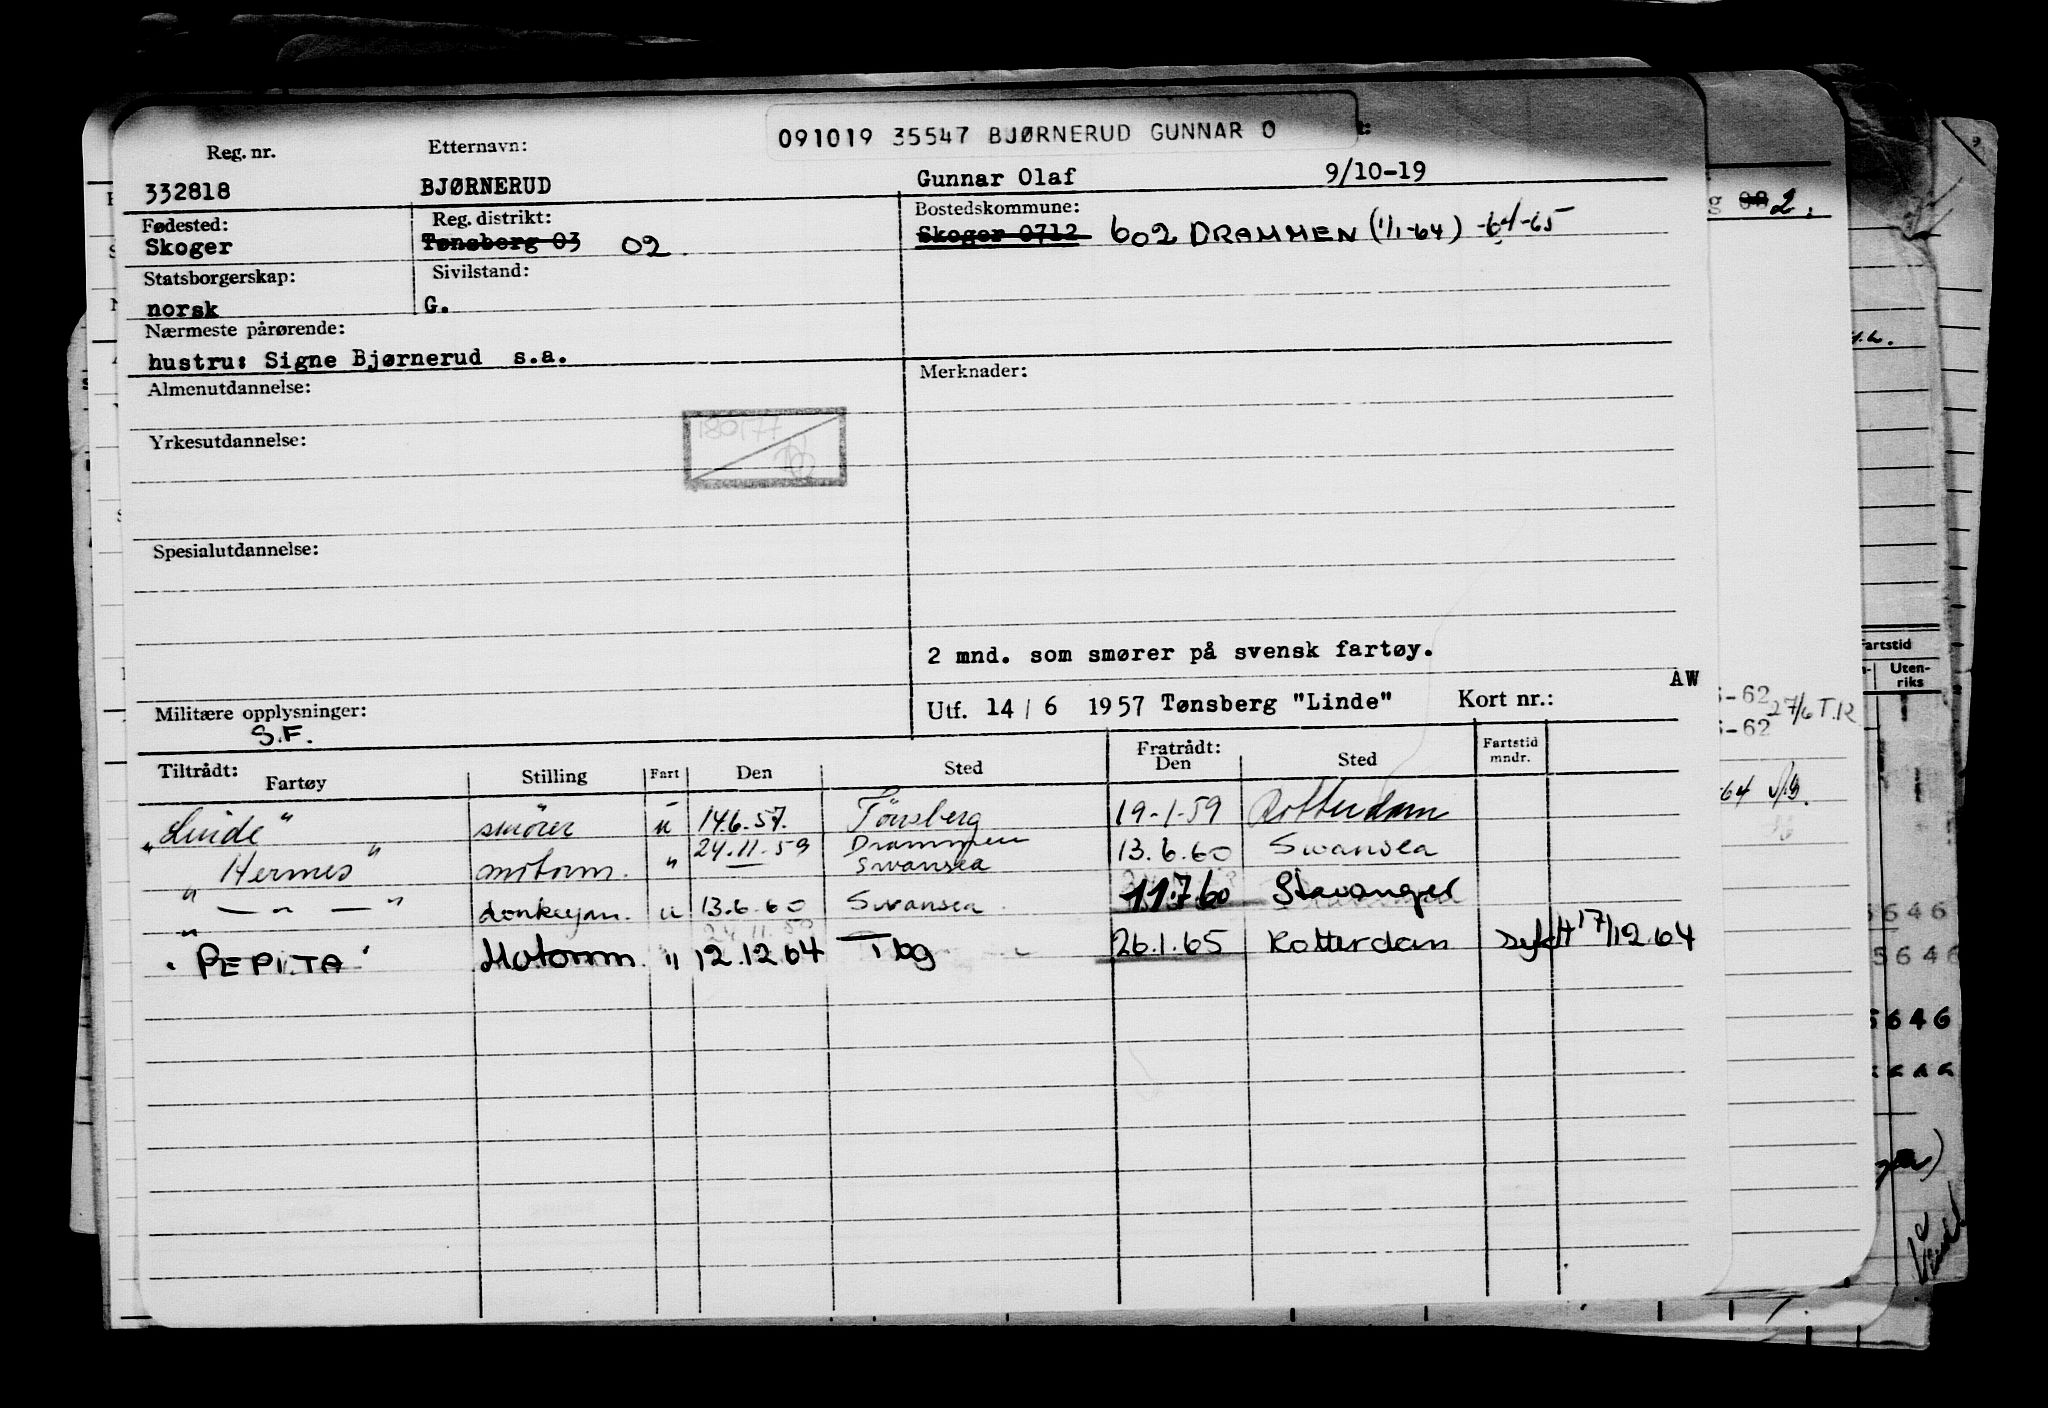 091019 35547 BJØRNERUD GUNNAR O
Reg. nr. Etternavn:
332818 BJØRNERUD Gunnar Olaf 9/10-19
Fødested: Reg. distrikt: Bostedskommune:
Skoger Tønsberg 03 02 Skoger 0712 602 DRAMMEN (1/1-64) -64-65
Statsborgerskap: Sivilstand:
norsk G.
Nærmeste pårørende:
hustru: Signe Bjørnerud s.a.
Almenutdannelse: Merknader:
180177
Yrkesutdannelse:
Spesialutdannelse:
2 mnd. som smører på svensk fartøy.
AW
Militære opplysninger: Utf. 14 / 6 1957 Tønsberg "Linde" Kort nr.:
S.F.
Tiltrådt: Fartøy Stilling Fart Den Sted Fratrådt: Den Sted Fartstid mndr.
"Linde" smører u 14.6.57. Tönsberg 19-1-59 Rotterdam
"Hermes" motorm. " 24.11.59 Drammen 13.6.60 Swansea
Swansea
" — " — " donkeyan. u 13.6.60 Swansea 11.7.60 Stavanger
"PEPITA" Motorm. " 12.12.64 Tbg 26.1.65 Rotterdam 17/12.64
2.
Fartstid
Uten-
riks
-62 27/6 T.K
-62
-64
646
5646
5646